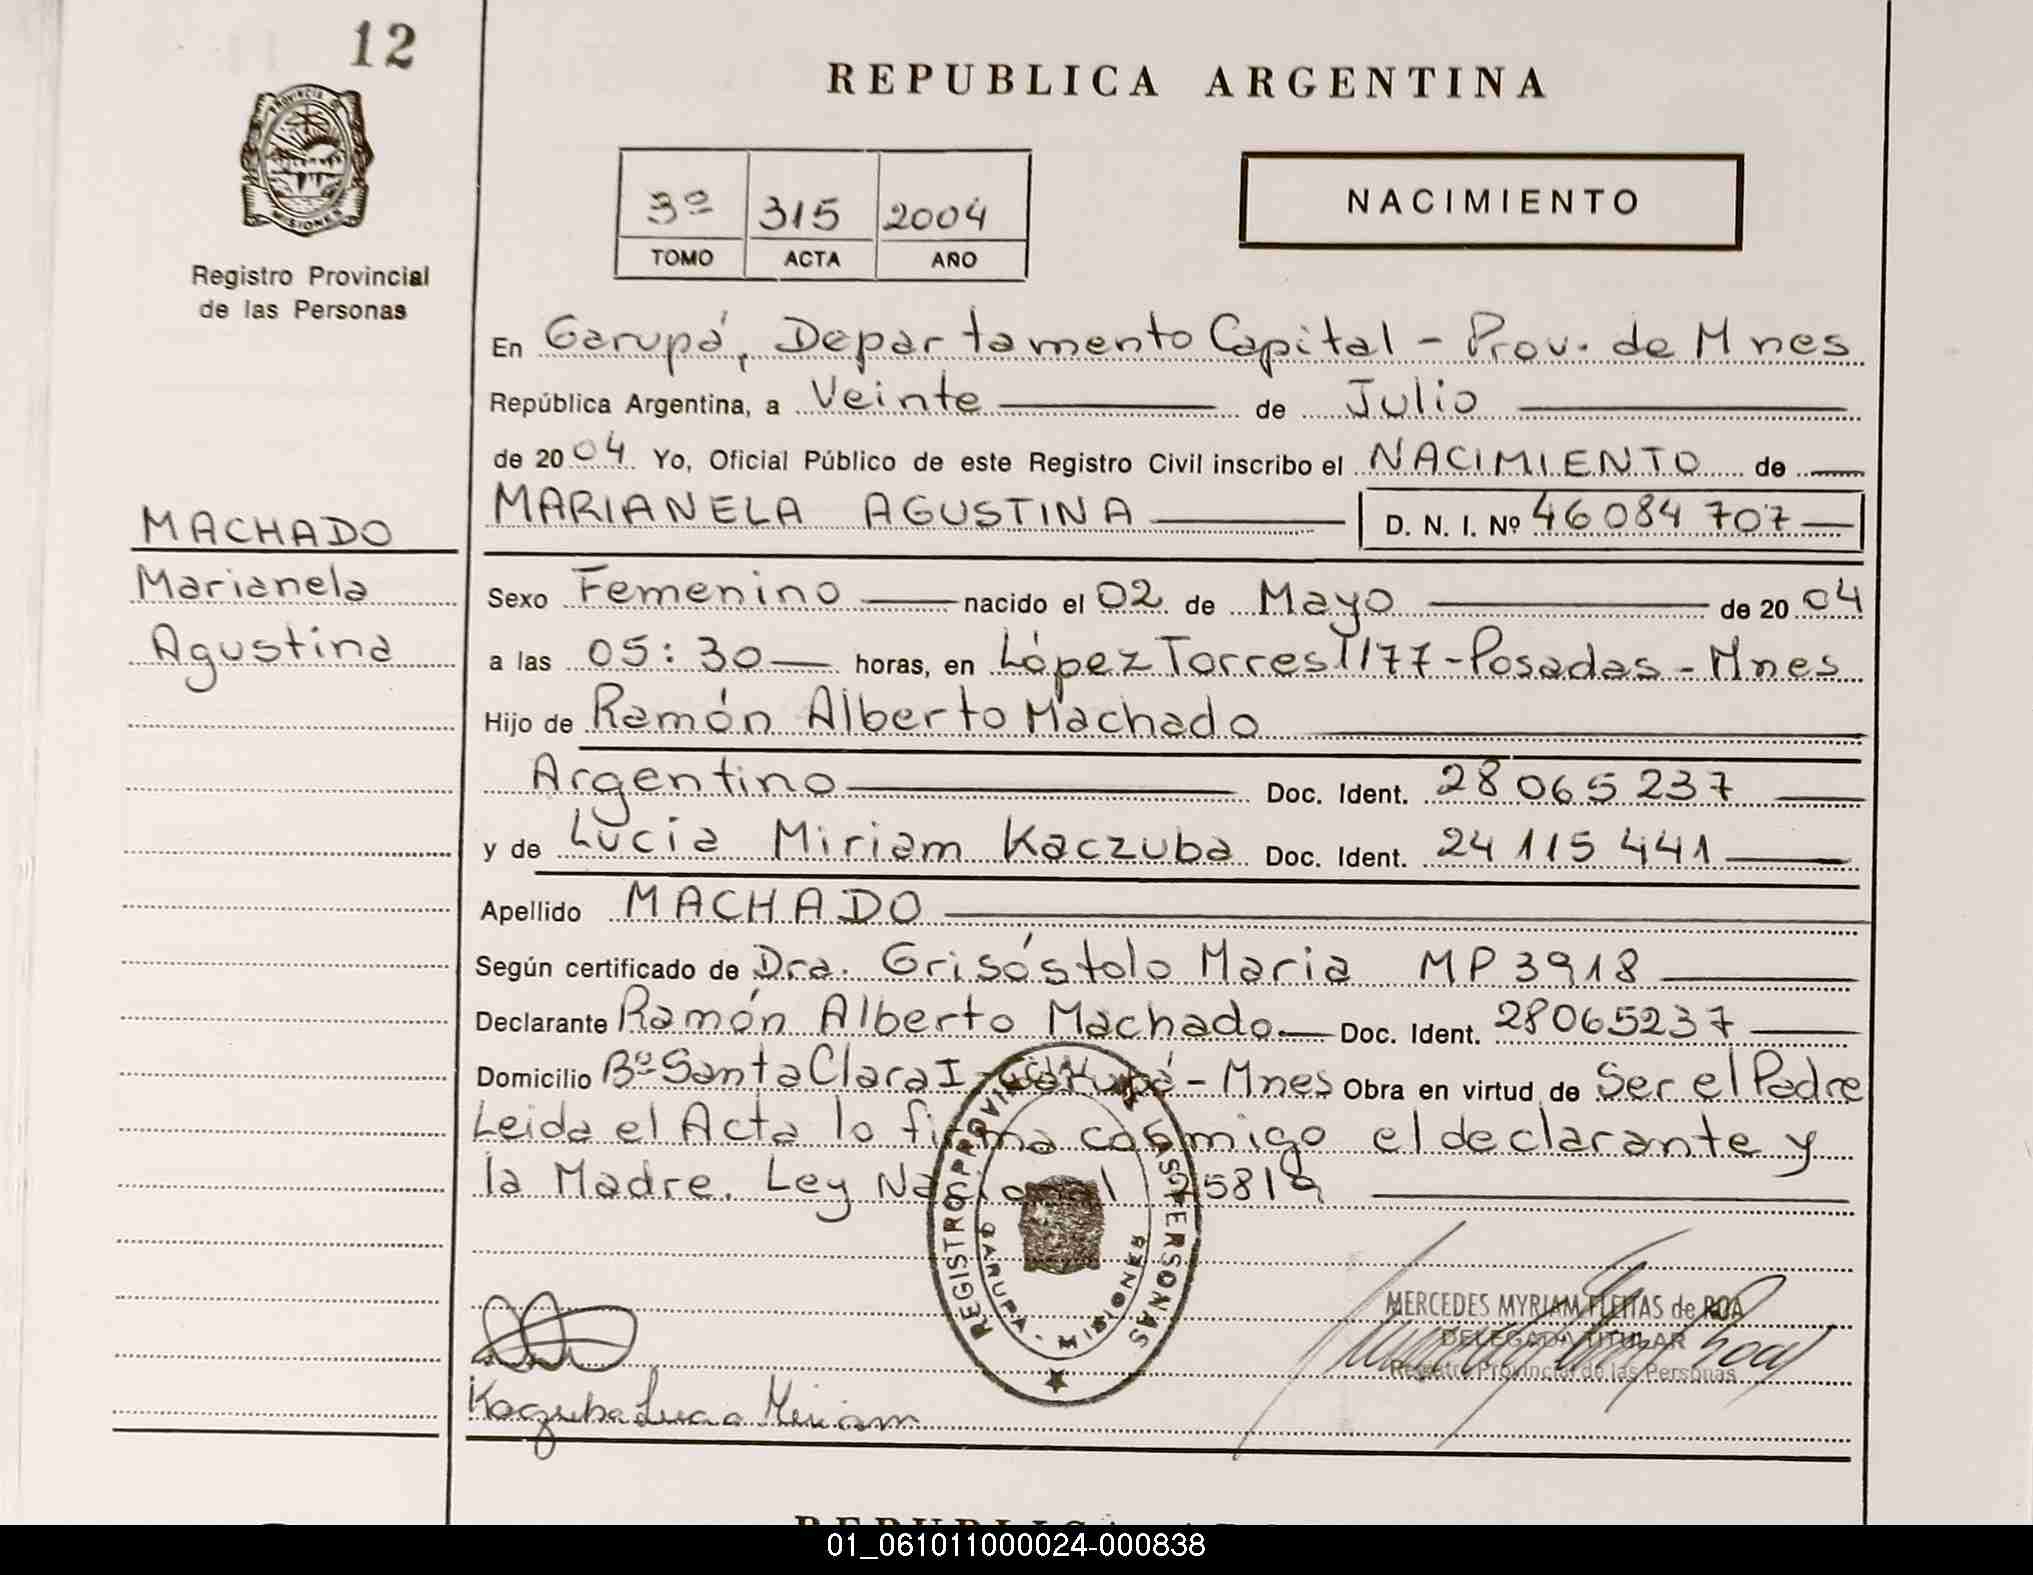 12
REPUBLICA ARGENTINA
PROVINCIA D
MISIONES
Registro Provincial
de las Personas
NACIMIENTO
3º 315 2004
TOMO ACTA AÑO
En Garupá, Departamento Capital - Prov. de Mnes
República Argentina, a Veinte de Julio
de 2004 Yo, Oficial Público de este Registro Civil inscribo el NACIMIENTO de
MARIANELA AGUSTINA D. N. I. Nº 46084707
MACHADO
Marianela
Agustina
Sexo Femenino nacido el 02 de Mayo de 2004
a las 05:30 horas, en López Torres 1177-Posadas-Mnes
Hijo de Ramón Alberto Machado
Argentino Doc. Ident. 28065237
y de Lucia Miriam Kaczuba Doc. Ident. 24115441
Apellido MACHADO
Según certificado de Dra. Grisóstolo Maria MP 3918
Declarante Ramón Alberto Machado Doc. Ident. 28065237
Domicilio Bº Santa Clara I - Garupá - Mnes Obra en virtud de Ser el Padre
Leida el Acta lo firma conmigo el declarante y
la Madre. Ley Nacional 25819
REGISTRO PROVINCIAL DE LAS PERSONAS
GARUPA - MISIONES
MERCEDES MYRIAM FLEITAS de ROA
DELEGADA TITULAR
Registro Provincial de las Personas
Kaczuba Lucia Miriam
01_061011000024-000838